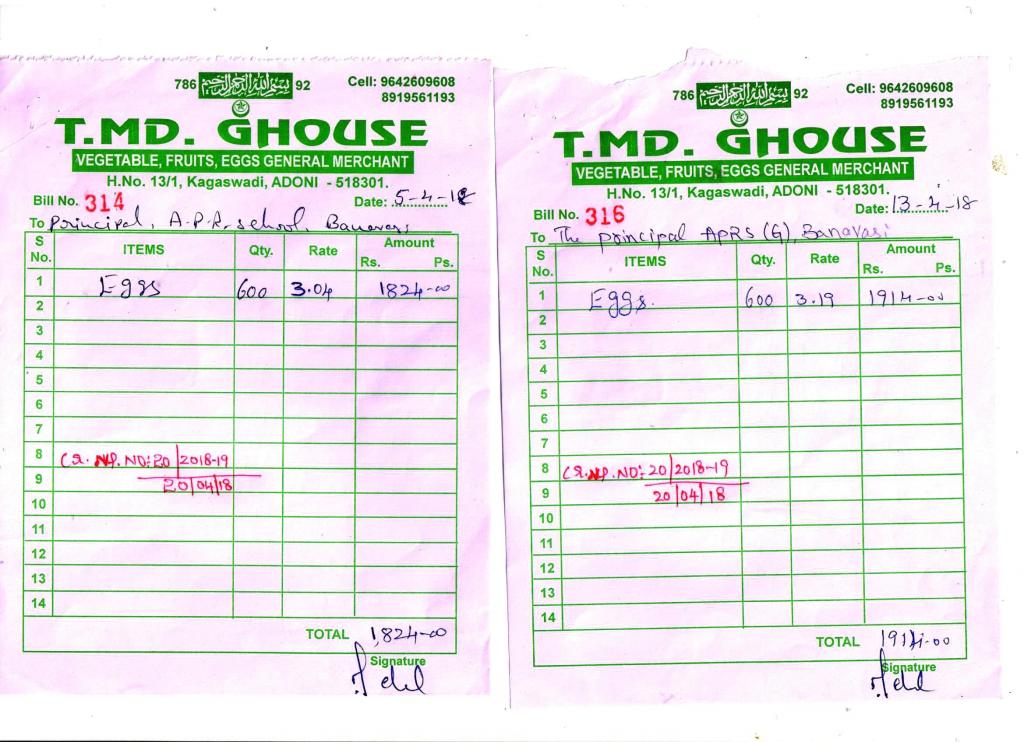 786 بسم الله الرحمن الرحيم 92
Cell: 9642609608
8919561193
T.MD. GHOUSE
VEGETABLE, FRUITS, EGGS GENERAL MERCHANT
H.No. 13/1, Kagaswadi, ADONI - 518301.
Bill No. 314 Date: 5-4-18
To Principal, A.P.R. School, Banavasi
S No. ITEMS Qty. Rate Amount Rs. Ps.
1 Eggs 600 3.04 1824-00
2
3
4
5
6
7
8 Cr. Vp. NO: 20/2018-19
9 20/04/18
10
11
12
13
14
TOTAL 1,824-00
Signature
786 بسم الله الرحمن الرحيم 92
Cell: 9642609608
8919561193
T.MD. GHOUSE
VEGETABLE, FRUITS, EGGS GENERAL MERCHANT
H.No. 13/1, Kagaswadi, ADONI - 518301.
Bill No. 316 Date: 13-4-18
To The principal APRS (G), Banavasi
S No. ITEMS Qty. Rate Amount Rs. Ps.
1 Eggs. 600 3.19 1914-00
2
3
4
5
6
7
8 Cr. Vp. NO: 20/2018-19
9 20/04/18
10
11
12
13
14
TOTAL 1914-00
Signature